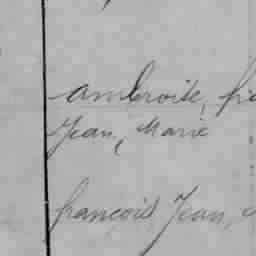 ambroise, pie
Jean, Marie
françois Jean,